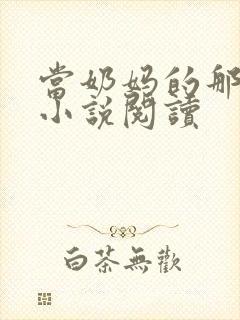 當奶妈的那
小說閱讀
白茶無歡